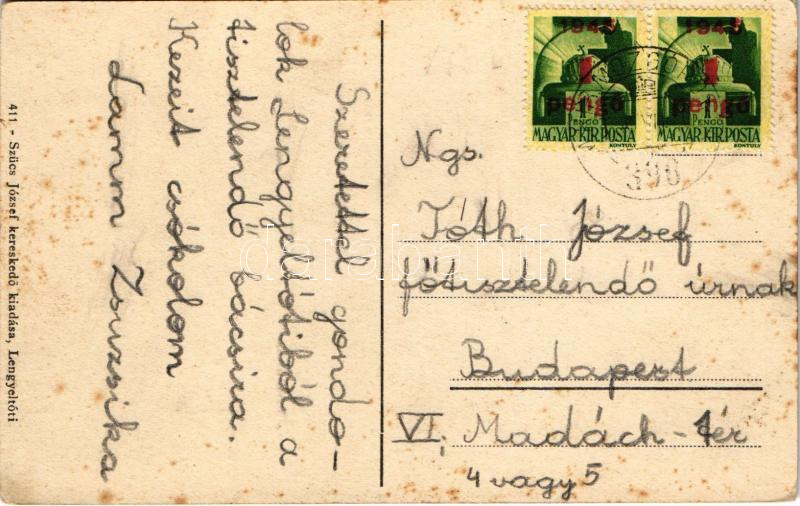 411 - Szücs József kereskedő kiadása, Lengyeltóti
Szeretettel gondo-
lok Lengyeltótiból a
tisztelendő bácsira.
Kezeit csókolom
Lamm Zsuzsika
1945 1945
1 1
pengő pengő
PENGŐ PENGŐ
MAGYAR KIR. POSTA MAGYAR KIR. POSTA
KONTULY KONTULY
390
Ngs.
Tóth József
főtisztelendő úrnak
Budapest
VI. Madách-tér
4 vagy 5
darabanth